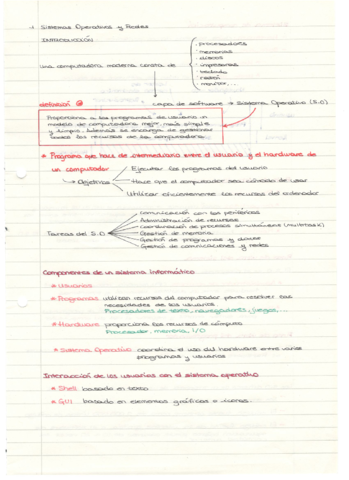 Sistemas Operativos y Redes
INTRODUCCIÓN
· procesadores
· memorias
· discos
Una computadora moderna consta de · impresoras
· teclado
· ratón
· monitor, ...
definición @ capa de software → Sistema Operativo (S.O)
Proporciona a los programas de usuario un
modelo de computadora mejor, más simple
y limpio. Además se encarga de gestionar
todos los recursos de la computadora.
* Programa que hace de intermediario entre el usuario y el hardware de
un computador Ejecutar los programas del usuario
→ Objetivos Hace que el computador sea cómodo de usar
Utilizar eficientemente los recursos del ordenador
Comunicación con los periféricos
Administración de recursos
Tareas del S.O Coordinación de procesos simultáneos (multitask)
Gestión de memoria
Gestión de programas y datos
Gestión de comunicaciones y redes
Componentes de un sistema informático
* Usuarios
* Programas utilizan recursos del computador para resolver las
necesidades de los usuarios
Procesadores de texto, navegadores, juegos, ...
* Hardware proporciona los recursos de cómputo
Procesador, memoria, I/O
* Sistema Operativo coordina el uso del hardware entre varios
programas y usuarios
Interacción de los usuarios con el sistema operativo
* Shell basado en texto
* GUI basado en elementos gráficos o iconos